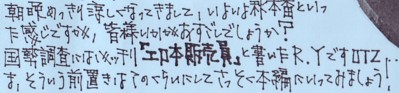 朝晩めっきり涼しくなってきまして、いよいよ秋本番といっ
た感じですが、皆様いかがおすごしでしょうか?
国勢調査にはハッキリ「エロ本販売員」と書いたR.YですOTZ…
ま、そういう前置きはこのくらいにしてさっそく本編にいってみましょう!